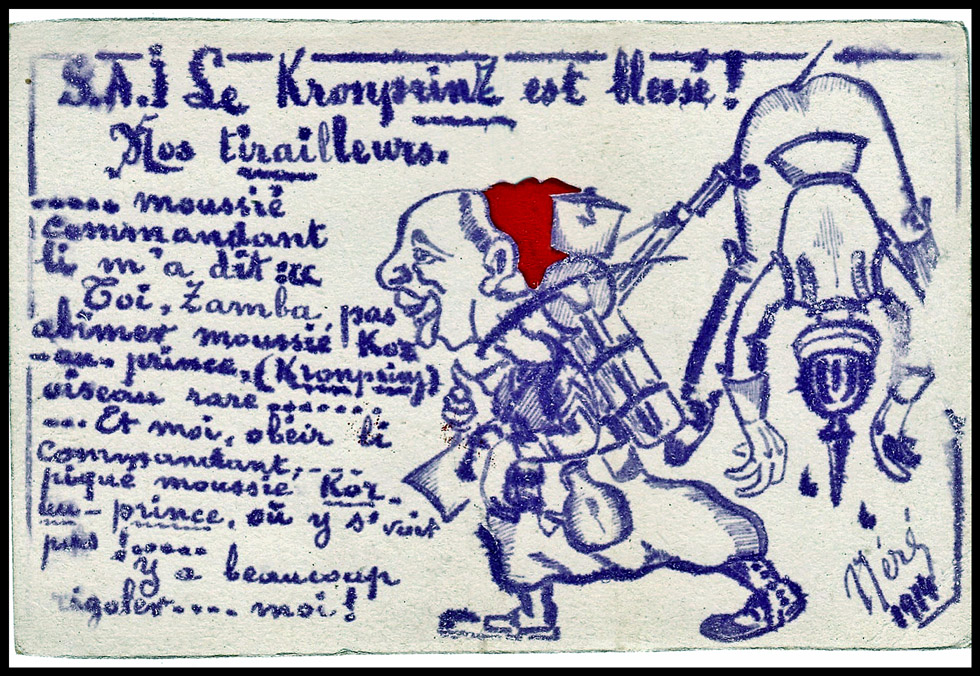 S.A.I Le Kronprinz est blessé!
Nos tirailleurs.
..... moussié
commandant
li m'a dit :
Toi, Zamba pas
abîmer moussié Kor
-au- prince, (Kronprinz)
oiseau rare .......
... Et moi, obéir li
commandant, ....
piqué moussié Kor-
au- prince, où y s'voit
pas !.....
Y a beaucoup
rigoler.... moi!
1914